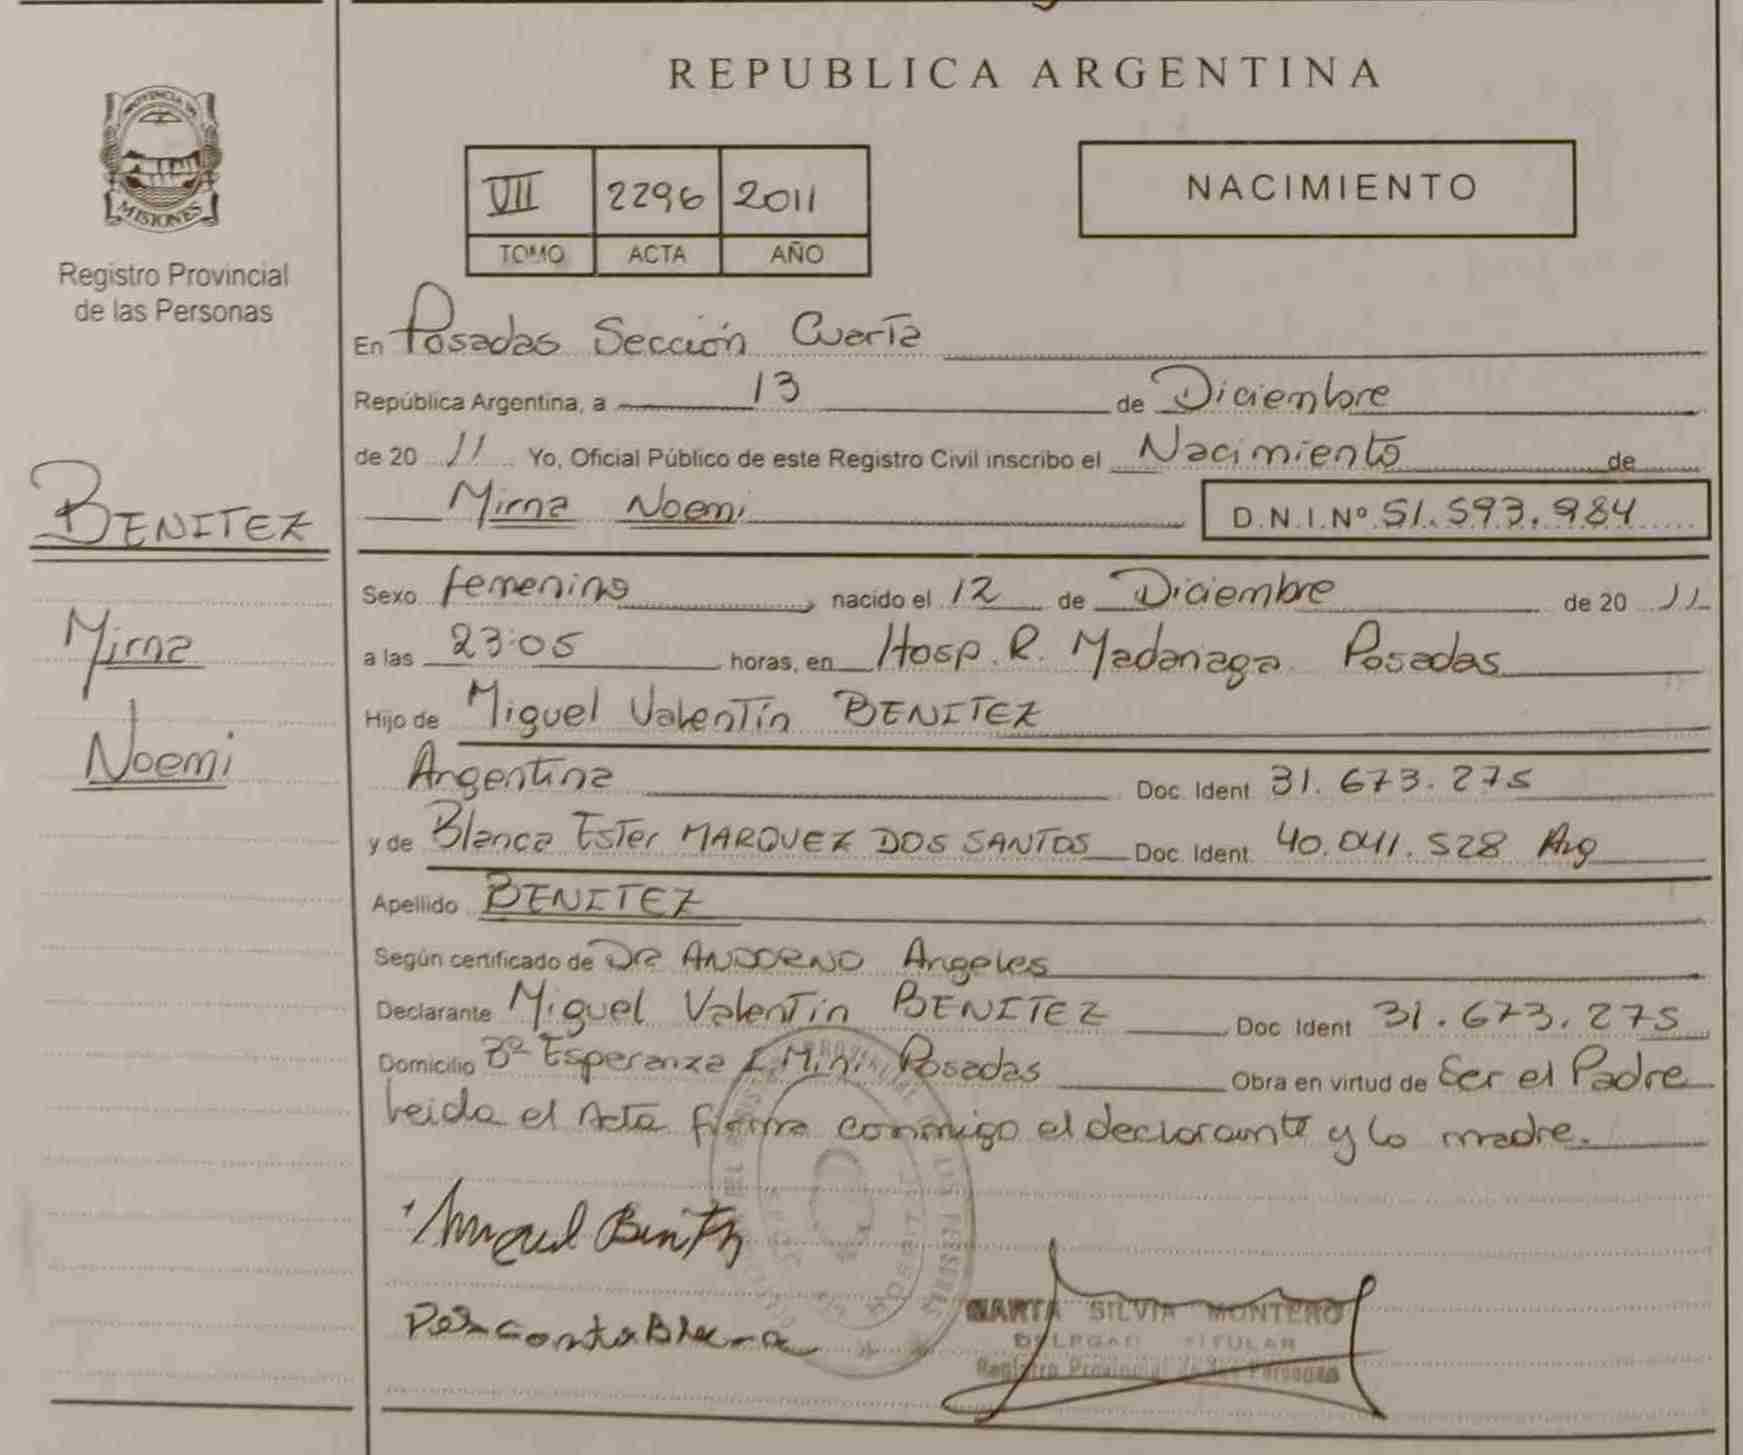 PROVINCIA DE
MISIONES
Registro Provincial
de las Personas
BENITEZ
Mirna
Noemi
REPUBLICA ARGENTINA
VII 2296 2011
TOMO ACTA AÑO
NACIMIENTO
En Posadas Sección Cuarta
República Argentina, a 13 de Diciembre
de 20 11 Yo, Oficial Público de este Registro Civil inscribo el Nacimiento de
Mirna Noemi D.N.I.Nº 51.593.984
Sexo femenino, nacido el 12 de Diciembre de 20 11
a las 23:05 horas, en Hosp. R. Madariaga Posadas
Hijo de Miguel Valentín BENITEZ
Argentina Doc. Ident 31.673.275
y de Blanca Ester MARQUEZ DOS SANTOS Doc. Ident. 40.041.528 Arg
Apellido BENITEZ
Según certificado de Dra ANDORNO Angeles
Declarante Miguel Valentin BENITEZ Doc Ident 31.673.275
Domicilio Bº Esperanza I. Mini Posadas Obra en virtud de Ser el Padre
Leida el Acta firma conmigo el declarante y la madre.
Miguel Benitez
MARTA SILVIA MONTERO
DELEGAD TITULAR
Registro Provincial de las Personas